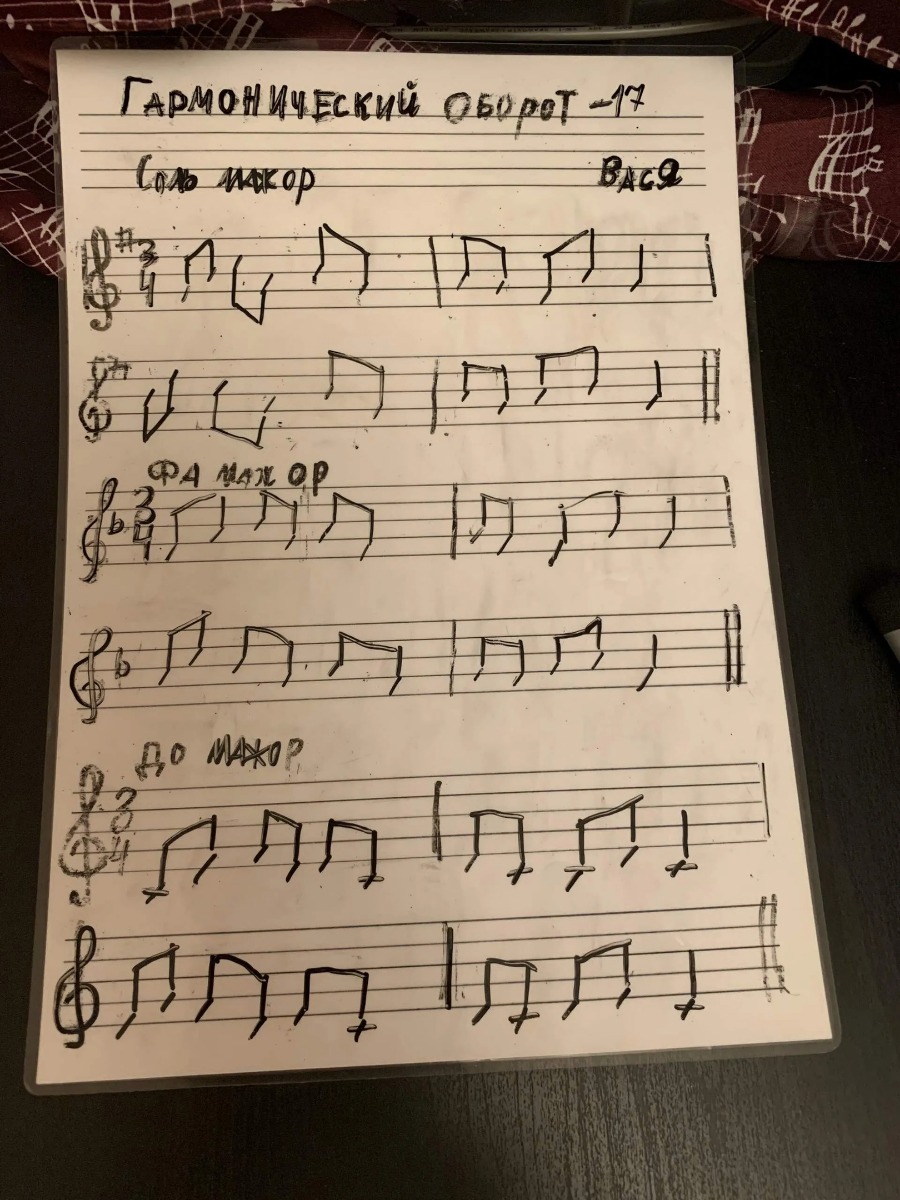 Гармонический оборот -17
Соль мажор Вася
3
4
Фа мажор
3
4
До мажор
3
4